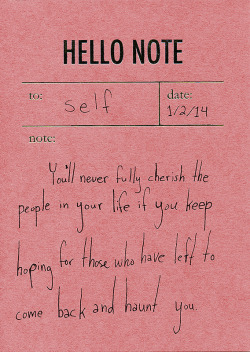 HELLO NOTE
to: self
date: 1/2/14
note:
You'll never fully cherish the
people in your life if you keep
hoping for those who have left to
come back and haunt you.